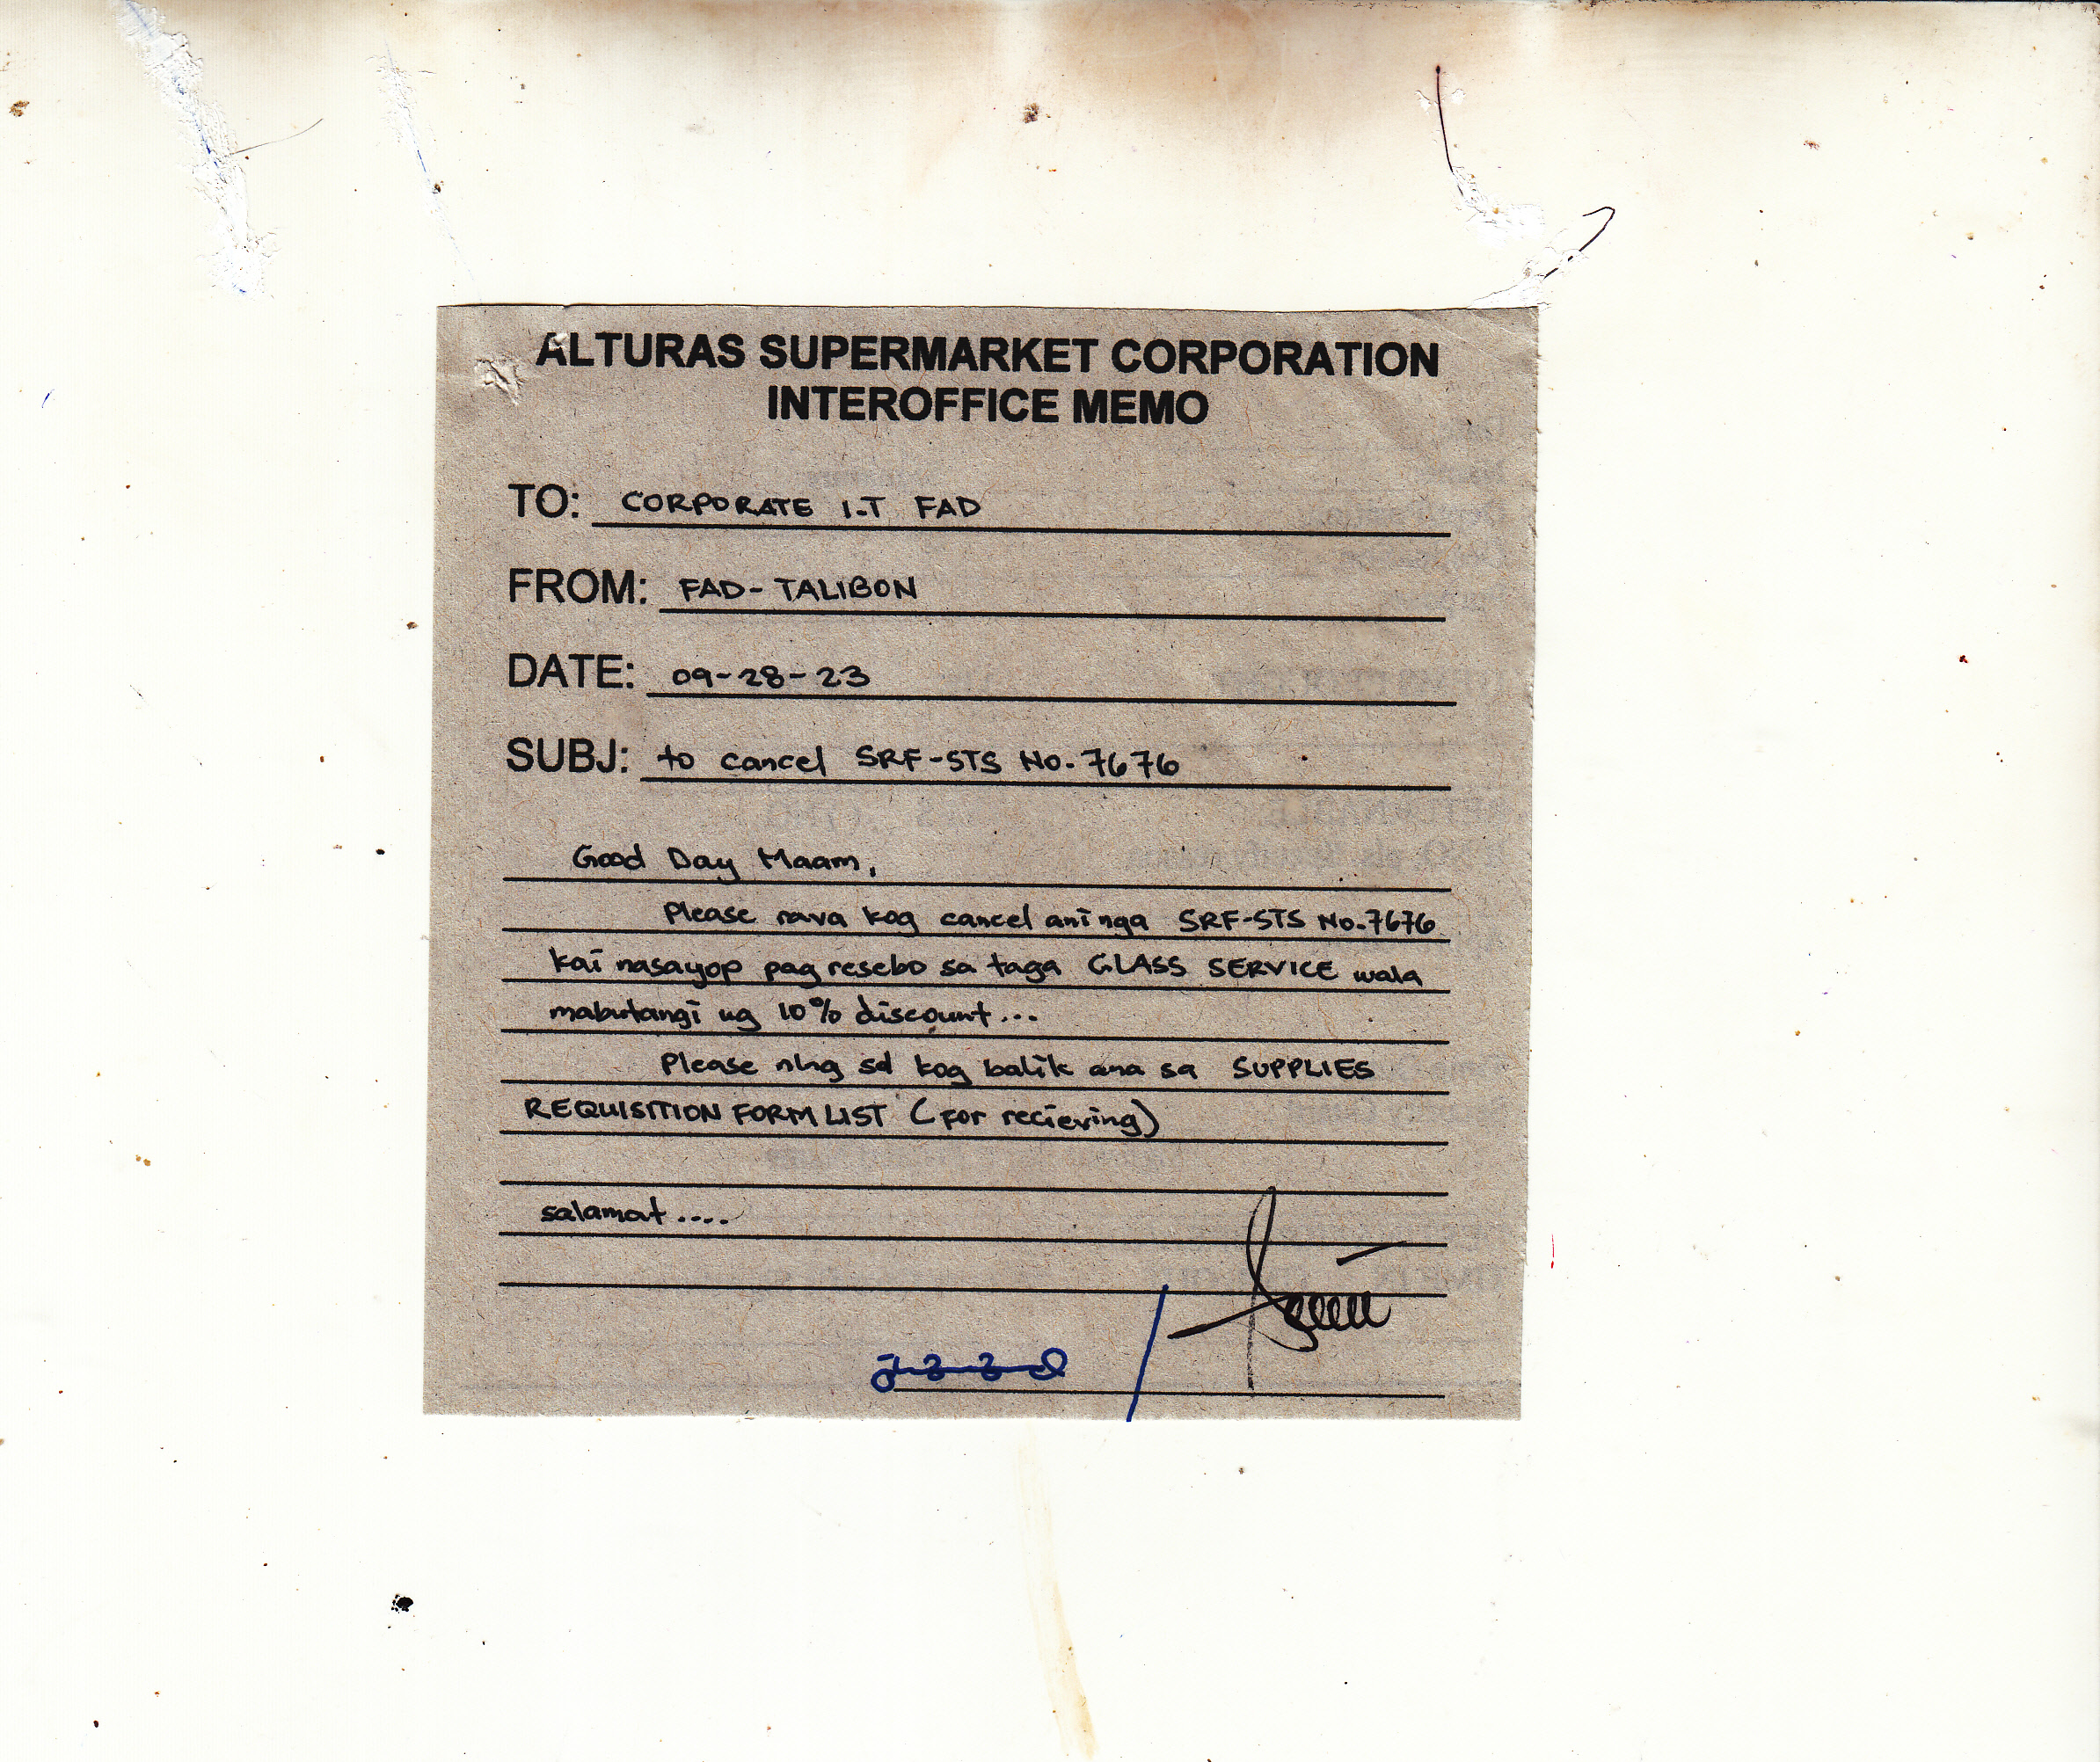 ALTURAS SUPERMARKET CORPORATION
INTEROFFICE MEMO
TO: CORPORATE I.T FAD
FROM: FAD-TALIBON
DATE: 09-28-23
SUBJ: to cancel SRF-STS No. 7676
Good Day Maam,
Please rava kog cancel aninga SRF-STS No.7676
kai nasayop pag resebo sa taga GLASS SERVICE wala
mabutangi ug 10% discount...
Please nlng sd kog balik ana sa SUPPLIES
REQUISITION FORM LIST (for recieving)
salamat....